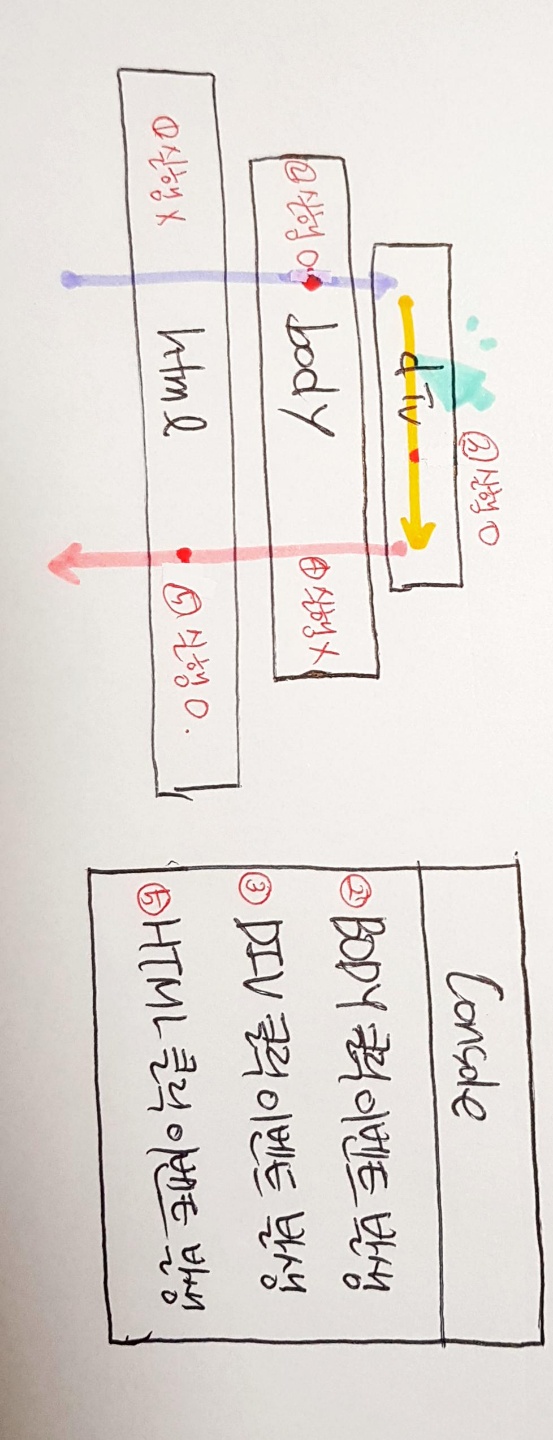 ③ 실행 O
div
② 실행 O
body
④ 실행 X
① 실행 X
html
⑤ 실행 O.
Console
② BODY 클릭 이벤트 발생
③ DIV 클릭 이벤트 발생
⑤ HTML 클릭 이벤트 발생